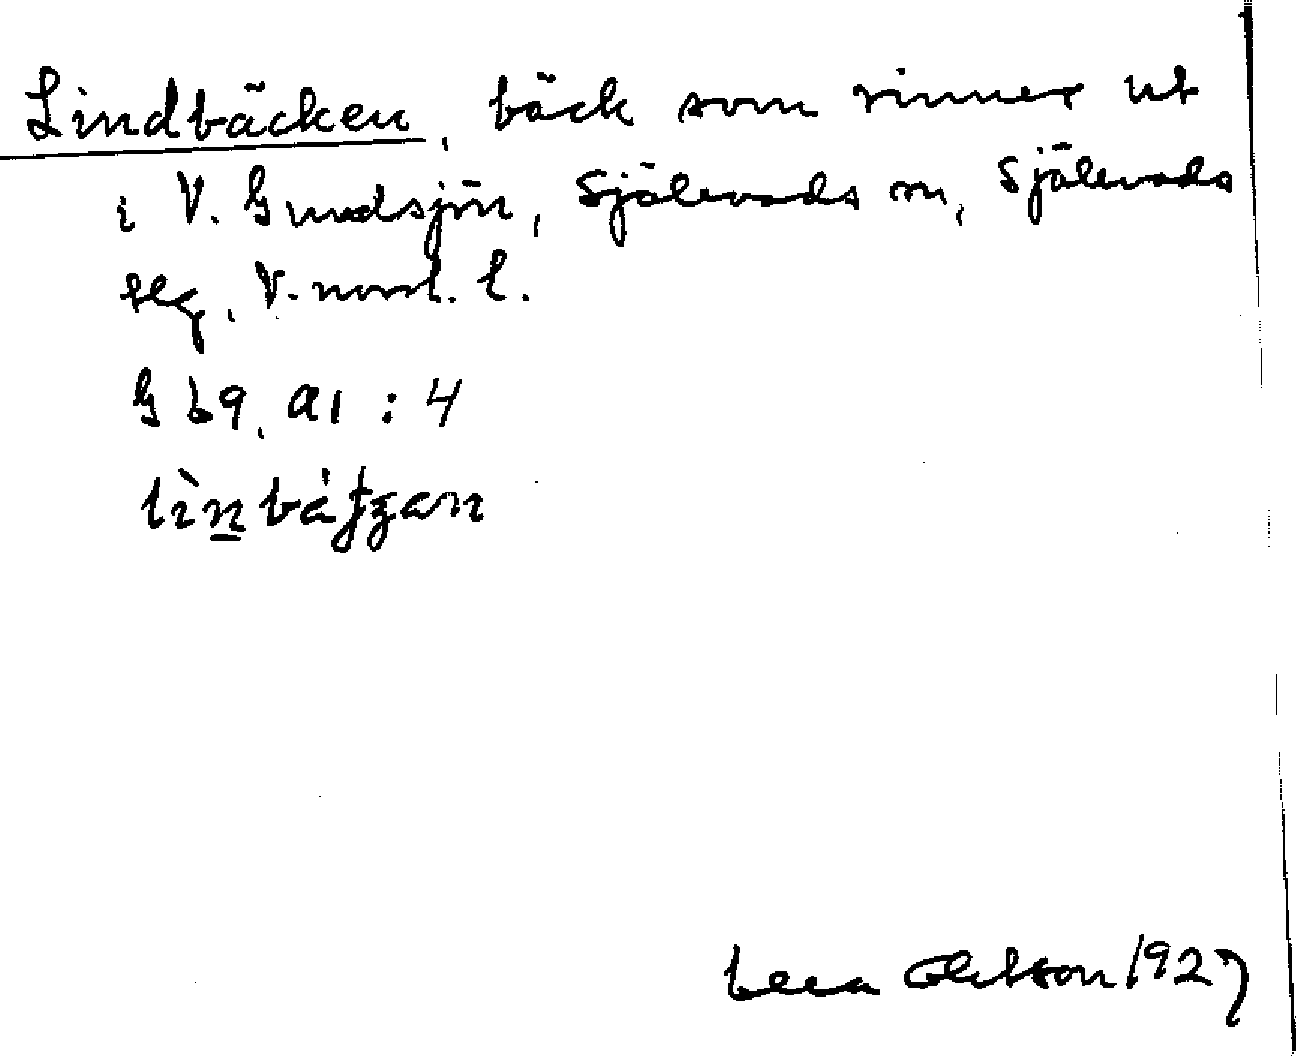 Lindbäcken, bäck som rinner ut
i V. Gundsjön, Själevads sn, Själevads
tlg, V.norrl. l.
G b9, a1 : 4
lìnbátʒan
Olofsson 1927